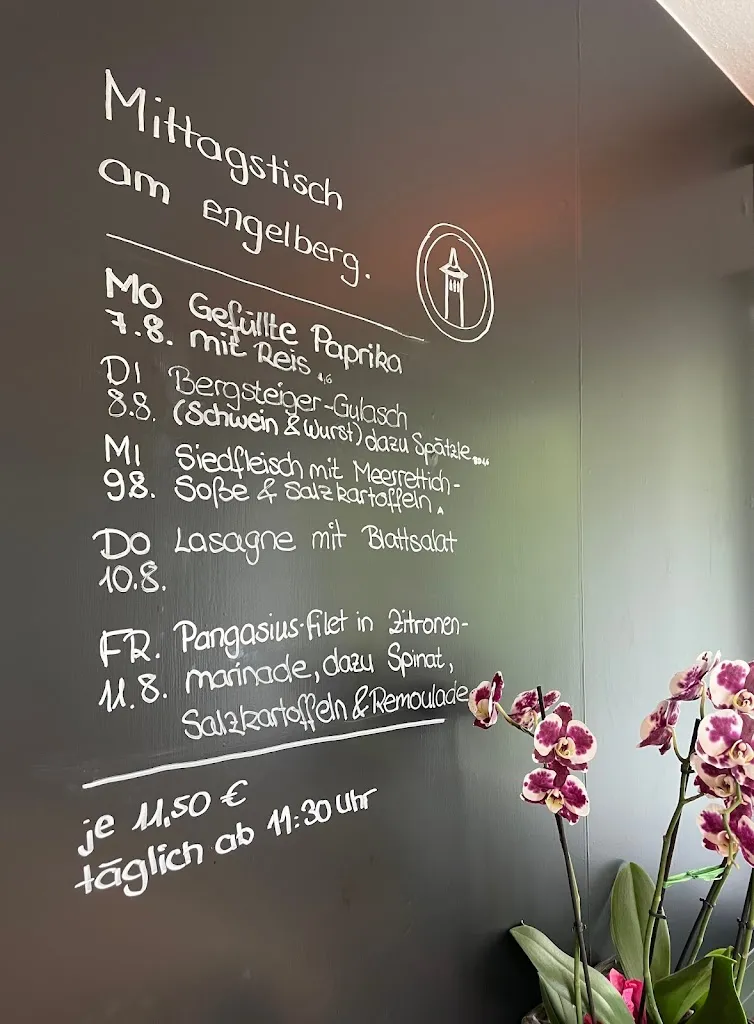 Mittagstisch
am Engelberg.
MO Gefüllte Paprika
7.8. mit Reis
DI Bergsteiger-Gulasch
8.8. (Schwein & Wurst) dazu Spätzle
MI Siedfleisch mit Meerrettich-
98. Soße & Salzkartoffeln
DO Lasagne mit Blattsalat
10.8.
FR. Pangasius-filet in Zitronen-
11.8. marinade, dazu Spinat,
Salzkartoffeln & Remoulade
je 11,50 €
täglich ab 11:30 Uhr